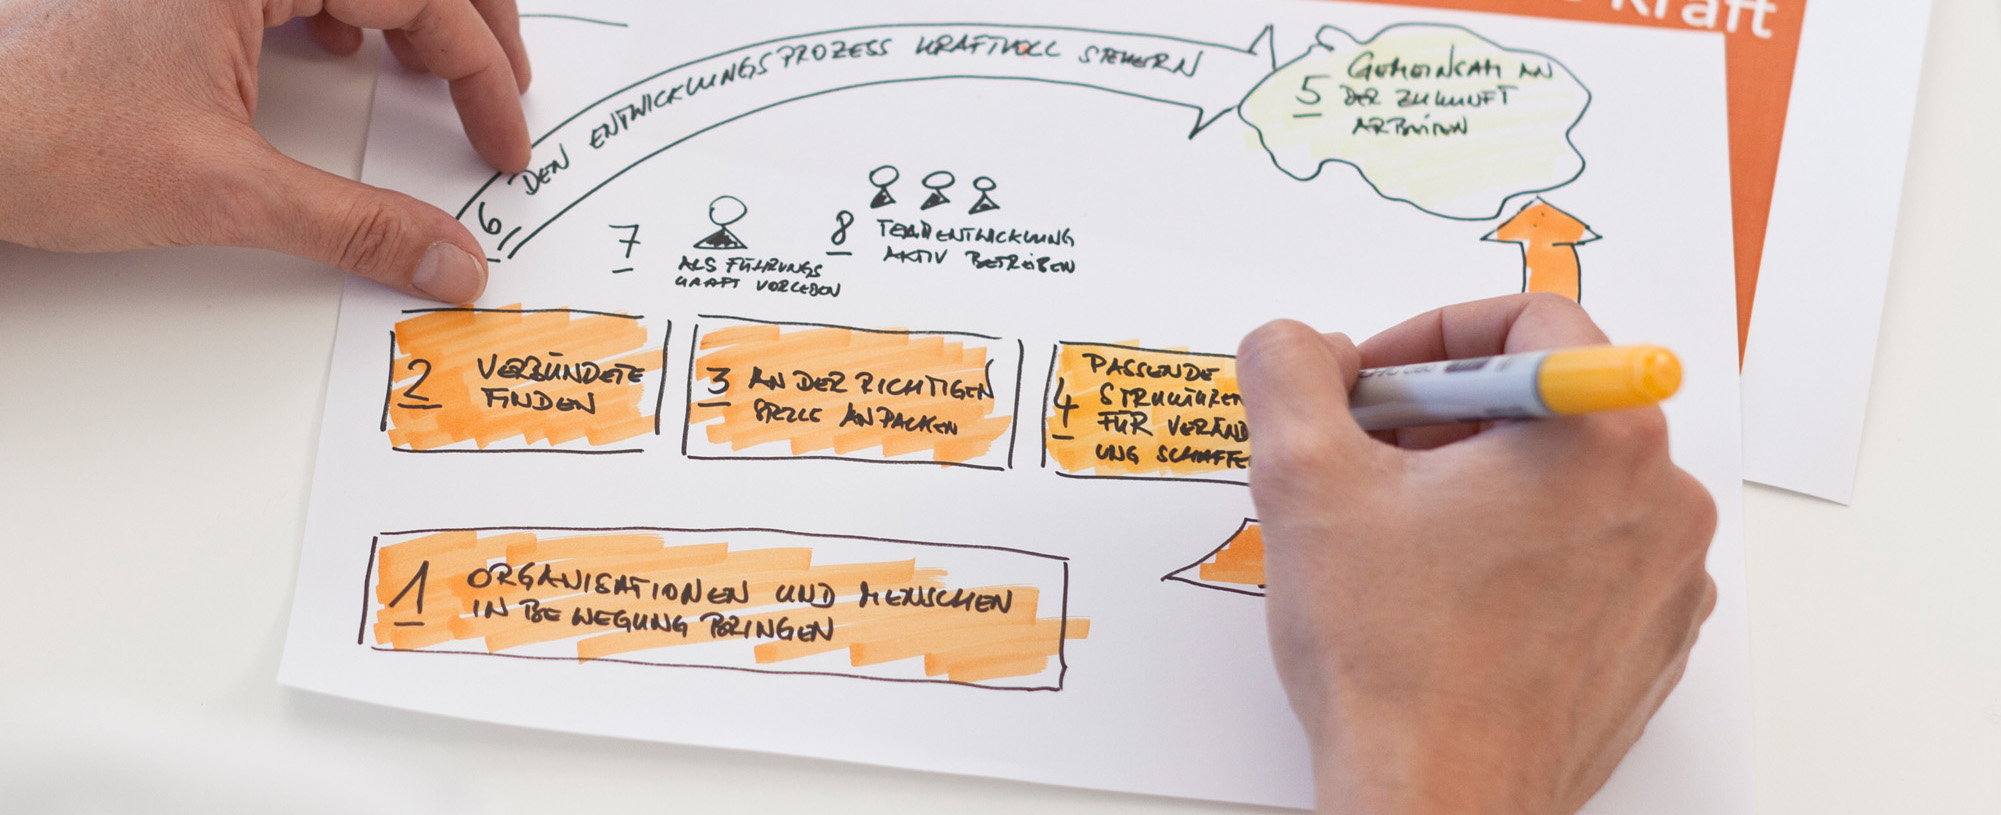 Kraft
6 DEN ENTWICKLUNGSPROZESS KRAFTVOLL STEUERN
5 GEMEINSAM AN
DER ZUKUNFT
ARBEITEN
7
ALS FÜHRUNGS
KRAFT VORLEBEN
8 TEAMENTWICKLUNG
AKTIV BETREIBEN
2 VERBÜNDETE
FINDEN
3 AN DER RICHTIGEN
STELLE ANPACKEN
4 PASSENDE
STRUKTUREN
FÜR VERÄND
UNG SCHAFFE
1 ORGANISATIONEN UND MENSCHEN
IN BEWEGUNG BRINGEN